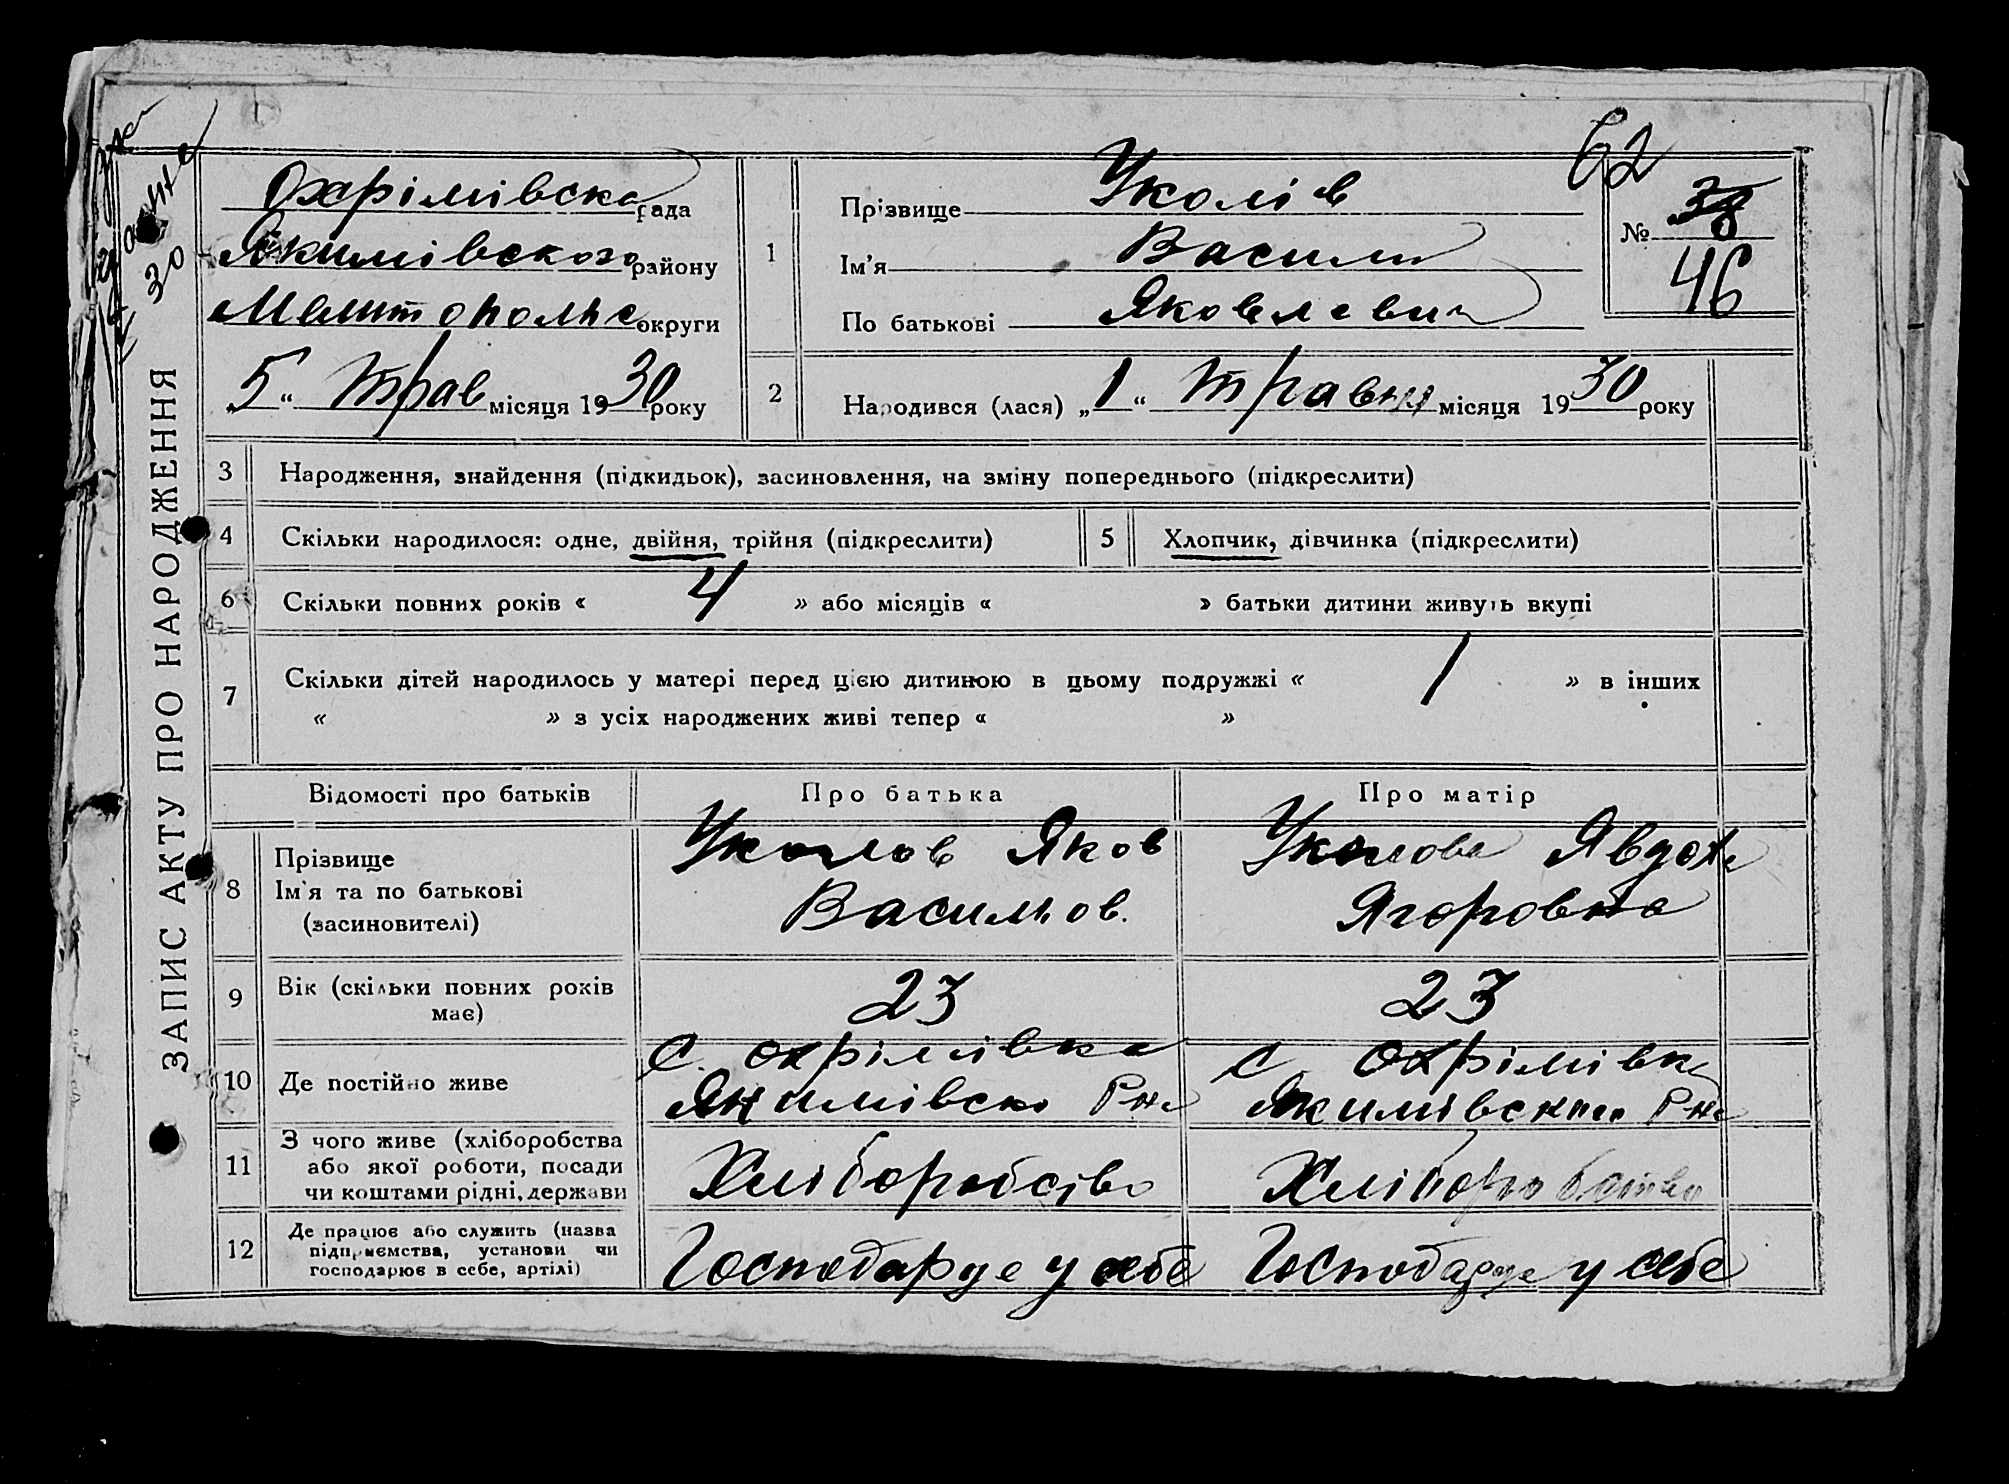 62
Охрімівська рада
Якимівського району
Мелитопольс округи
„5“ трав місяця 1930 року
1
Прізвище Уколів
Ім'я Василь
По батькові Яковлевич
№ 38
46
2
Народився (лася) „1“ травня місяця 1930 року
ЗАПИС АКТУ ПРО НАРОДЖЕННЯ
30
3 Народження, знайдення (підкидьок), засиновлення, на зміну попереднього (підкреслити)
4 Скільки народилося: одне, двійня, трійня (підкреслити) 5 Хлопчик, дівчинка (підкреслити)
6 Скільки повних років « 4 » або місяців « » батьки дитини живуть вкупі
7 Скільки дітей народилось у матері перед цією дитиною в цьому подружжі « 1 » в інших
« » з усіх народжених живі тепер « »
Відомості про батьків Про батька Про матір
8 Прізвище
Ім'я та по батькові
(засиновителі)
Уколов Яков
Васильов.
Уколова Явдоха
Ягоровна
9 Вік (скільки повних років
має)
23 23
10 Де постійно живе
С. Охрімівка
Якимівско Р-на
С. Охрімівка
Якимівского Р-на
11 З чого живе (хліборобства
або якої роботи, посади
чи коштами рідні, держави
Хліборобсіво Хліборобство
12 Де працює або служить (назва
підприємства, установи чи
господарює в себе, артілі)
Господарує у себе Господарує у себе